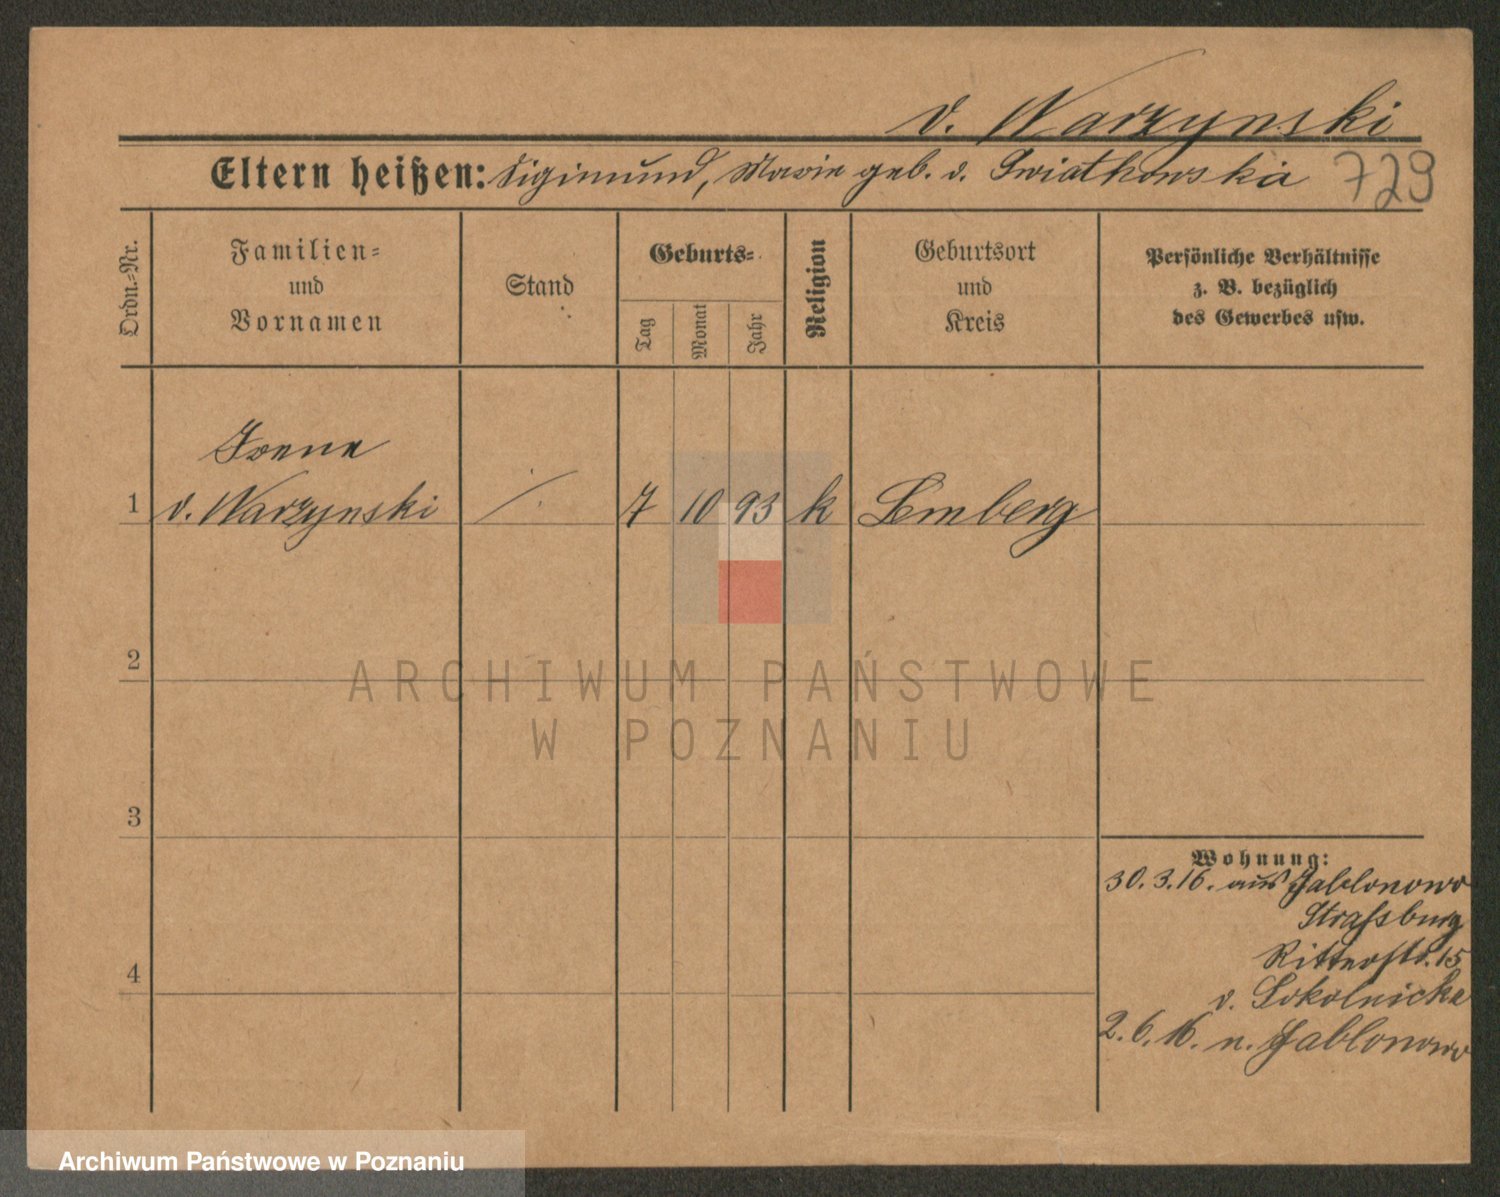 v. Warzynski
Eltern heißen: Sigimund, Marie geb. v. Gwiathowska 729
Ordn.=Nr.
Familien=
und
Vornamen
Stand
Geburts=
Tag
Monat
Jahr
Religion
Geburtsort
und
Kreis
Persönliche Verhältnisse
z. B. bezüglich
des Gewerbes usw.
Irene
1 v. Warzynski /. 7 10 93 k Lemberg
2
3
4
Wohnung:
30.3.16. aus Jablonowo
Strassburg
Ritterstr. 15
v. Sokolnicka
2.6.16. n. Jablonowo
ARCHIWUM PAŃSTWOWE
W POZNANIU
Archiwum Państwowe w Poznaniu